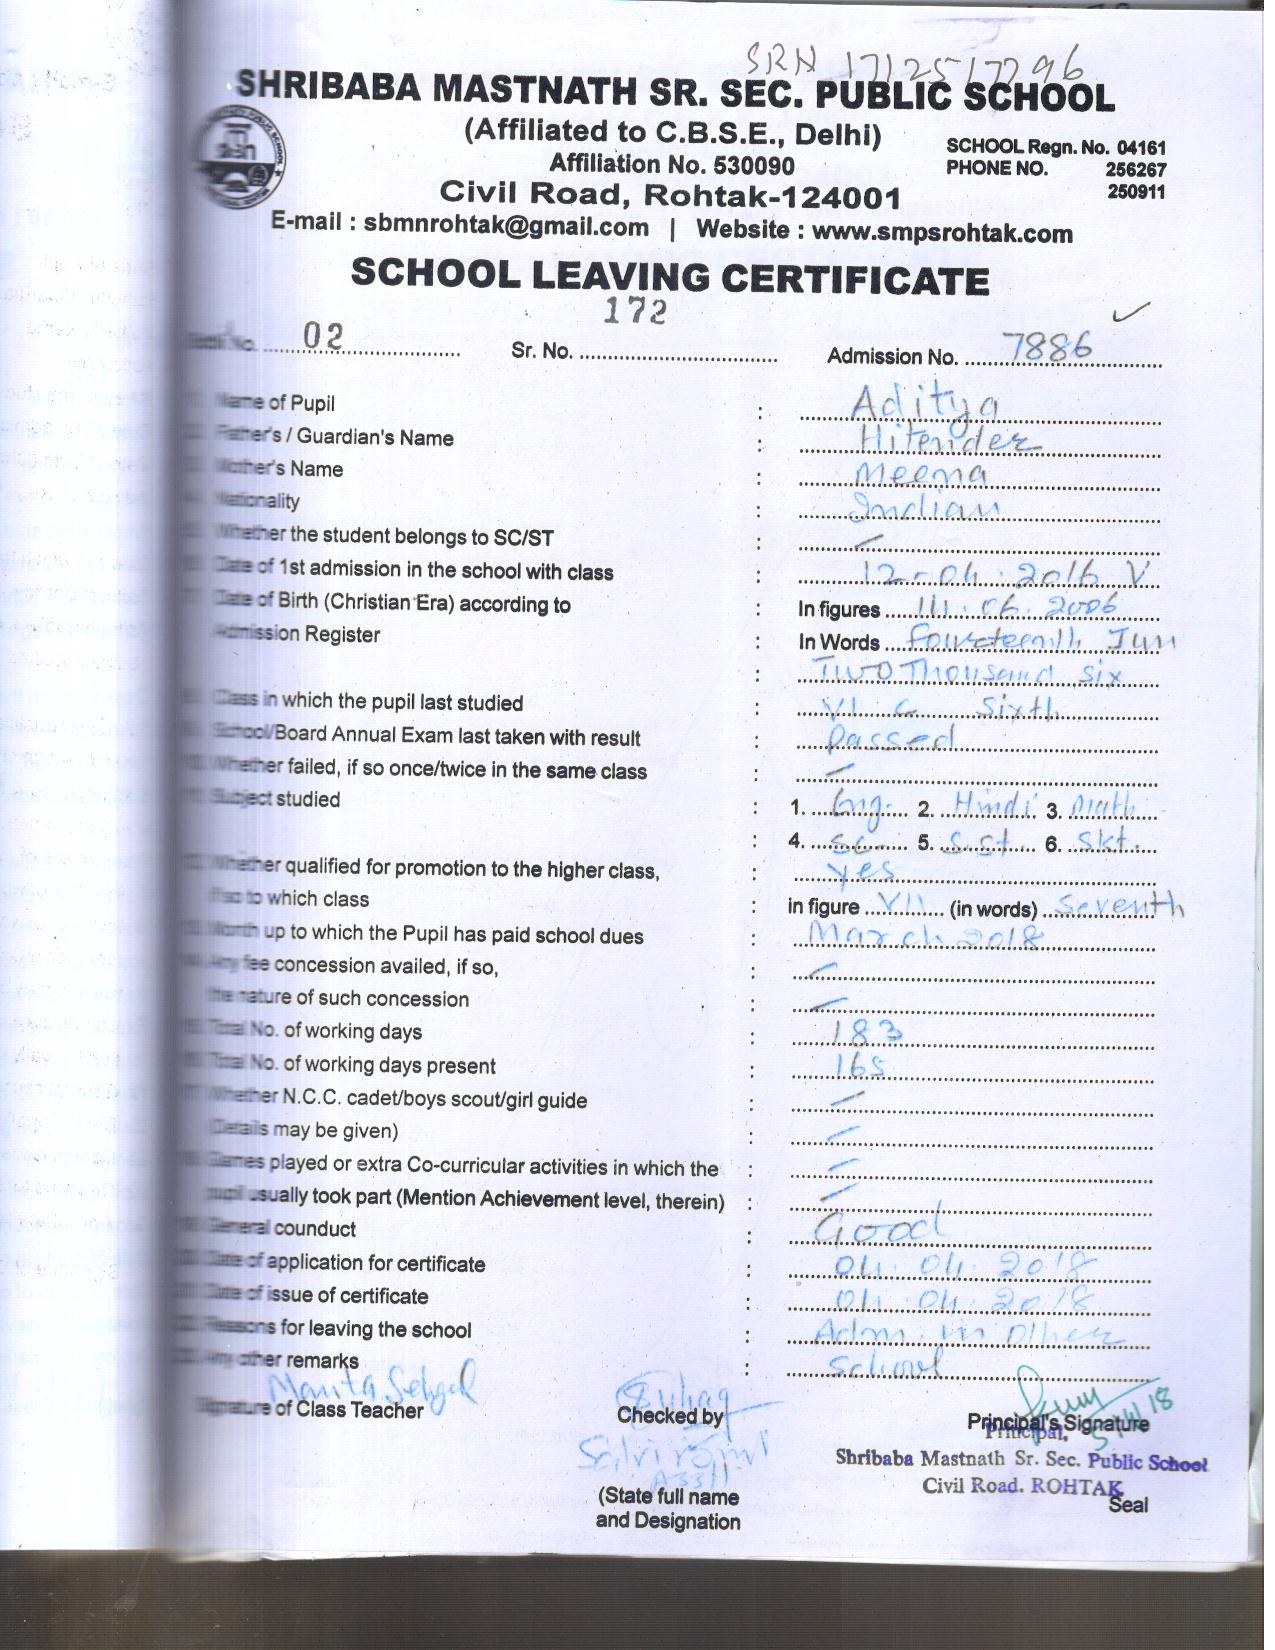 SRN 1712517296
SHRIBABA MASTNATH SR. SEC. PUBLIC SCHOOL
(Affiliated to C.B.S.E., Delhi)
SCHOOL Regn. No. 04161
Affiliation No. 530090
PHONE NO. 256267
250911
Civil Road, Rohtak-124001
E-mail : sbmnrohtak@gmail.com | Website : www.smpsrohtak.com
SCHOOL LEAVING CERTIFICATE
172
Book No. 02 Sr. No. Admission No. 7886
Name of Pupil : Aditya
Father's / Guardian's Name : Hitender
Mother's Name : Meena
Nationality : Indian
Whether the student belongs to SC/ST :
Date of 1st admission in the school with class : 12-04.2016 V
Date of Birth (Christian Era) according to : In figures 14.06.2006
Admission Register : In Words Fourteenth Jun
: Two Thousand Six
Class in which the pupil last studied : VI C Sixth
School/Board Annual Exam last taken with result : Passed
Whether failed, if so once/twice in the same class :
Subject studied : 1. Eng. 2. Hindi 3. Math
: 4. Sc. 5. S.St 6. Skt.
Whether qualified for promotion to the higher class, : Yes
if so to which class : in figure VII (in words) Seventh
Month up to which the Pupil has paid school dues : March 2018
Any fee concession availed, if so, :
the nature of such concession :
Total No. of working days : 183
Total No. of working days present : 165
Whether N.C.C. cadet/boys scout/girl guide :
(Details may be given) :
Games played or extra Co-curricular activities in which the :
pupil usually took part (Mention Achievement level, therein) :
General counduct : Good
Date of application for certificate : 04.04.2018
Date of issue of certificate : 04.04.2018
Reasons for leaving the school : Adm. in Other
Any other remarks : School
Manita Sehgal
Signature of Class Teacher Checked by Principal's Signature
5/4/18
Principal,
Shribaba Mastnath Sr. Sec. Public School
Civil Road. ROHTAK
Seal
(State full name
and Designation